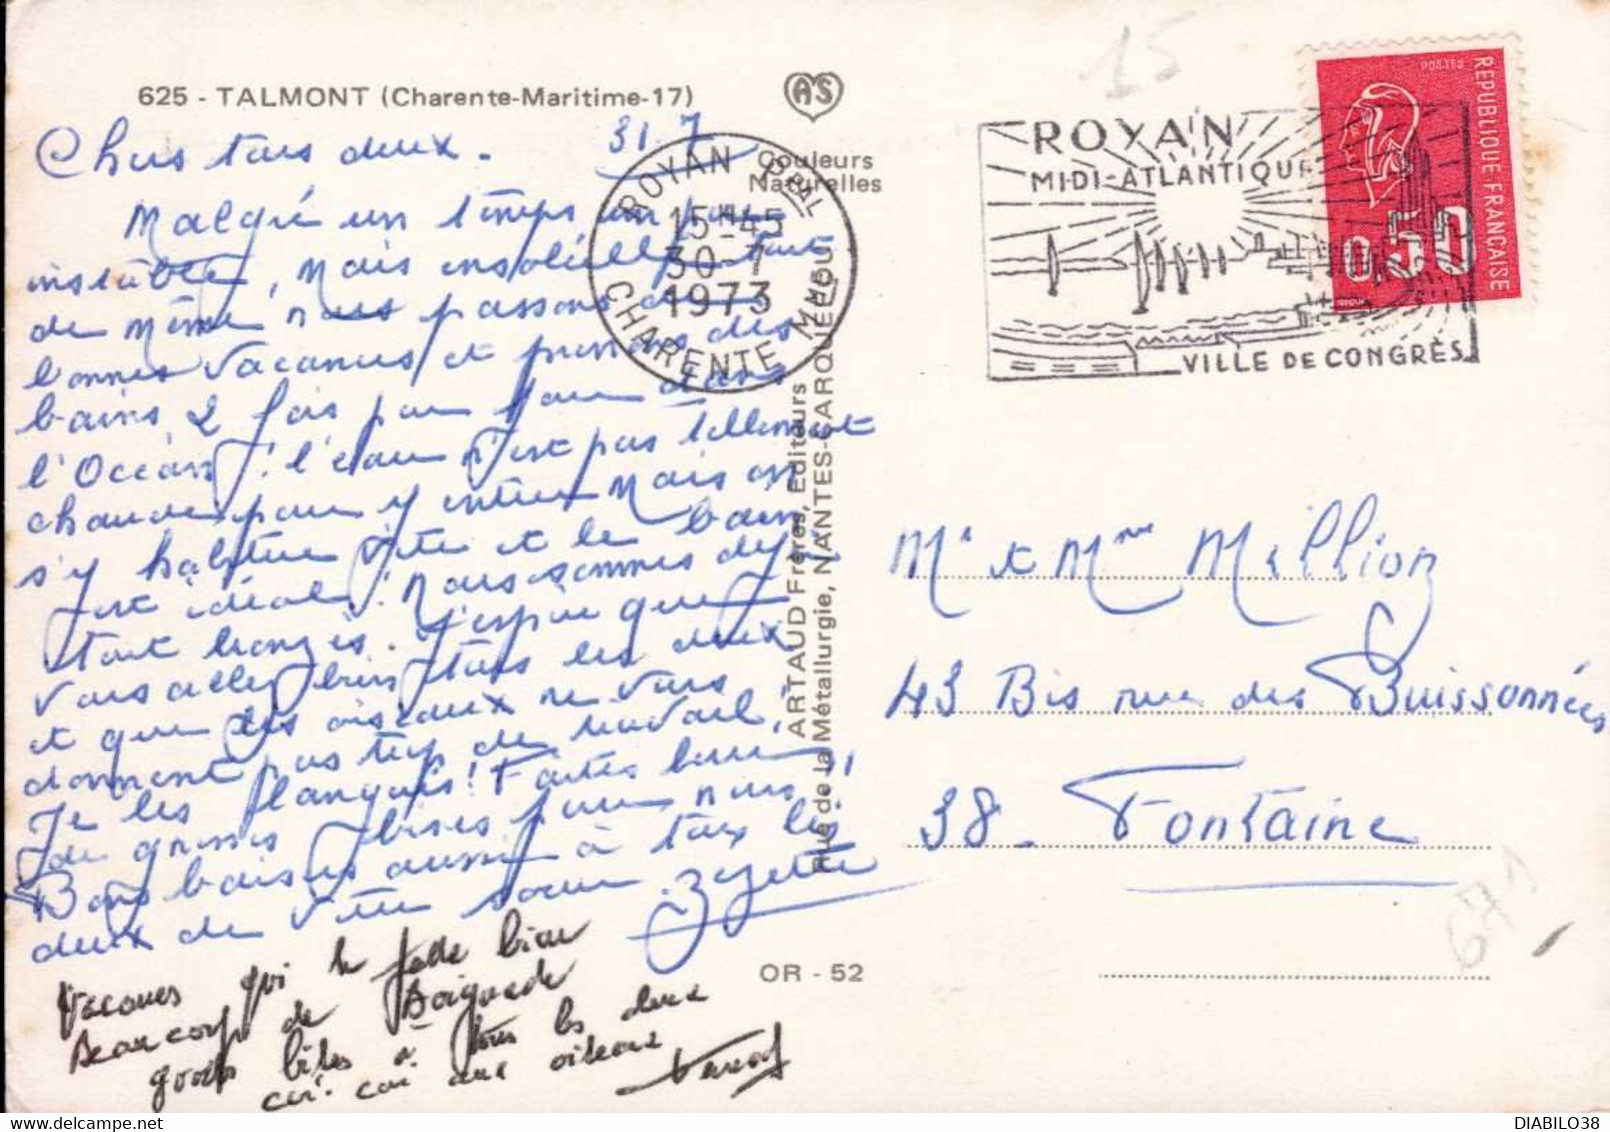 625 - TALMONT (Charente-Maritime-17)
AS
Couleurs
Naturelles
Chers tous deux. 31.7
Malgré un temps un peu
instable, mais ensoleillé tout
de même nous passons de
bonnes vacances et prenons des
bains 2 fois par jour dans
l'Océan! l'eau n'est pas tellement
chaude pour y entrer mais on
s'y habitue vite et le bain
est idéal! Nous sommes déjà
tout bronzés. J'espère que
vous allez bien tous les deux
et que les oiseaux ne vous
donnent pas trop de travail,
Je les
de grosses bises pour nous
Bons baisers aussi à tous les
deux de votre soeur Zezette
Vacances qui
Beaucoup de Baignade
bises à tous les deux
cui-cui aux oiseaux
ROYAN PPAL
15H45
30-7
1973
CHARENTE MME
ROYAN
MIDI-ATLANTIQUE
VILLE DE CONGRÈS
POSTES
REPUBLIQUE FRANÇAISE
0,50
15
ARTAUD Frères, Editeurs
Rue de la Métallurgie, NANTES-CARQUEFOU
Mr et Mme Million
43 Bis rue des Buissonnées
38 - Fontaine
671
OR - 52
DIABILO38